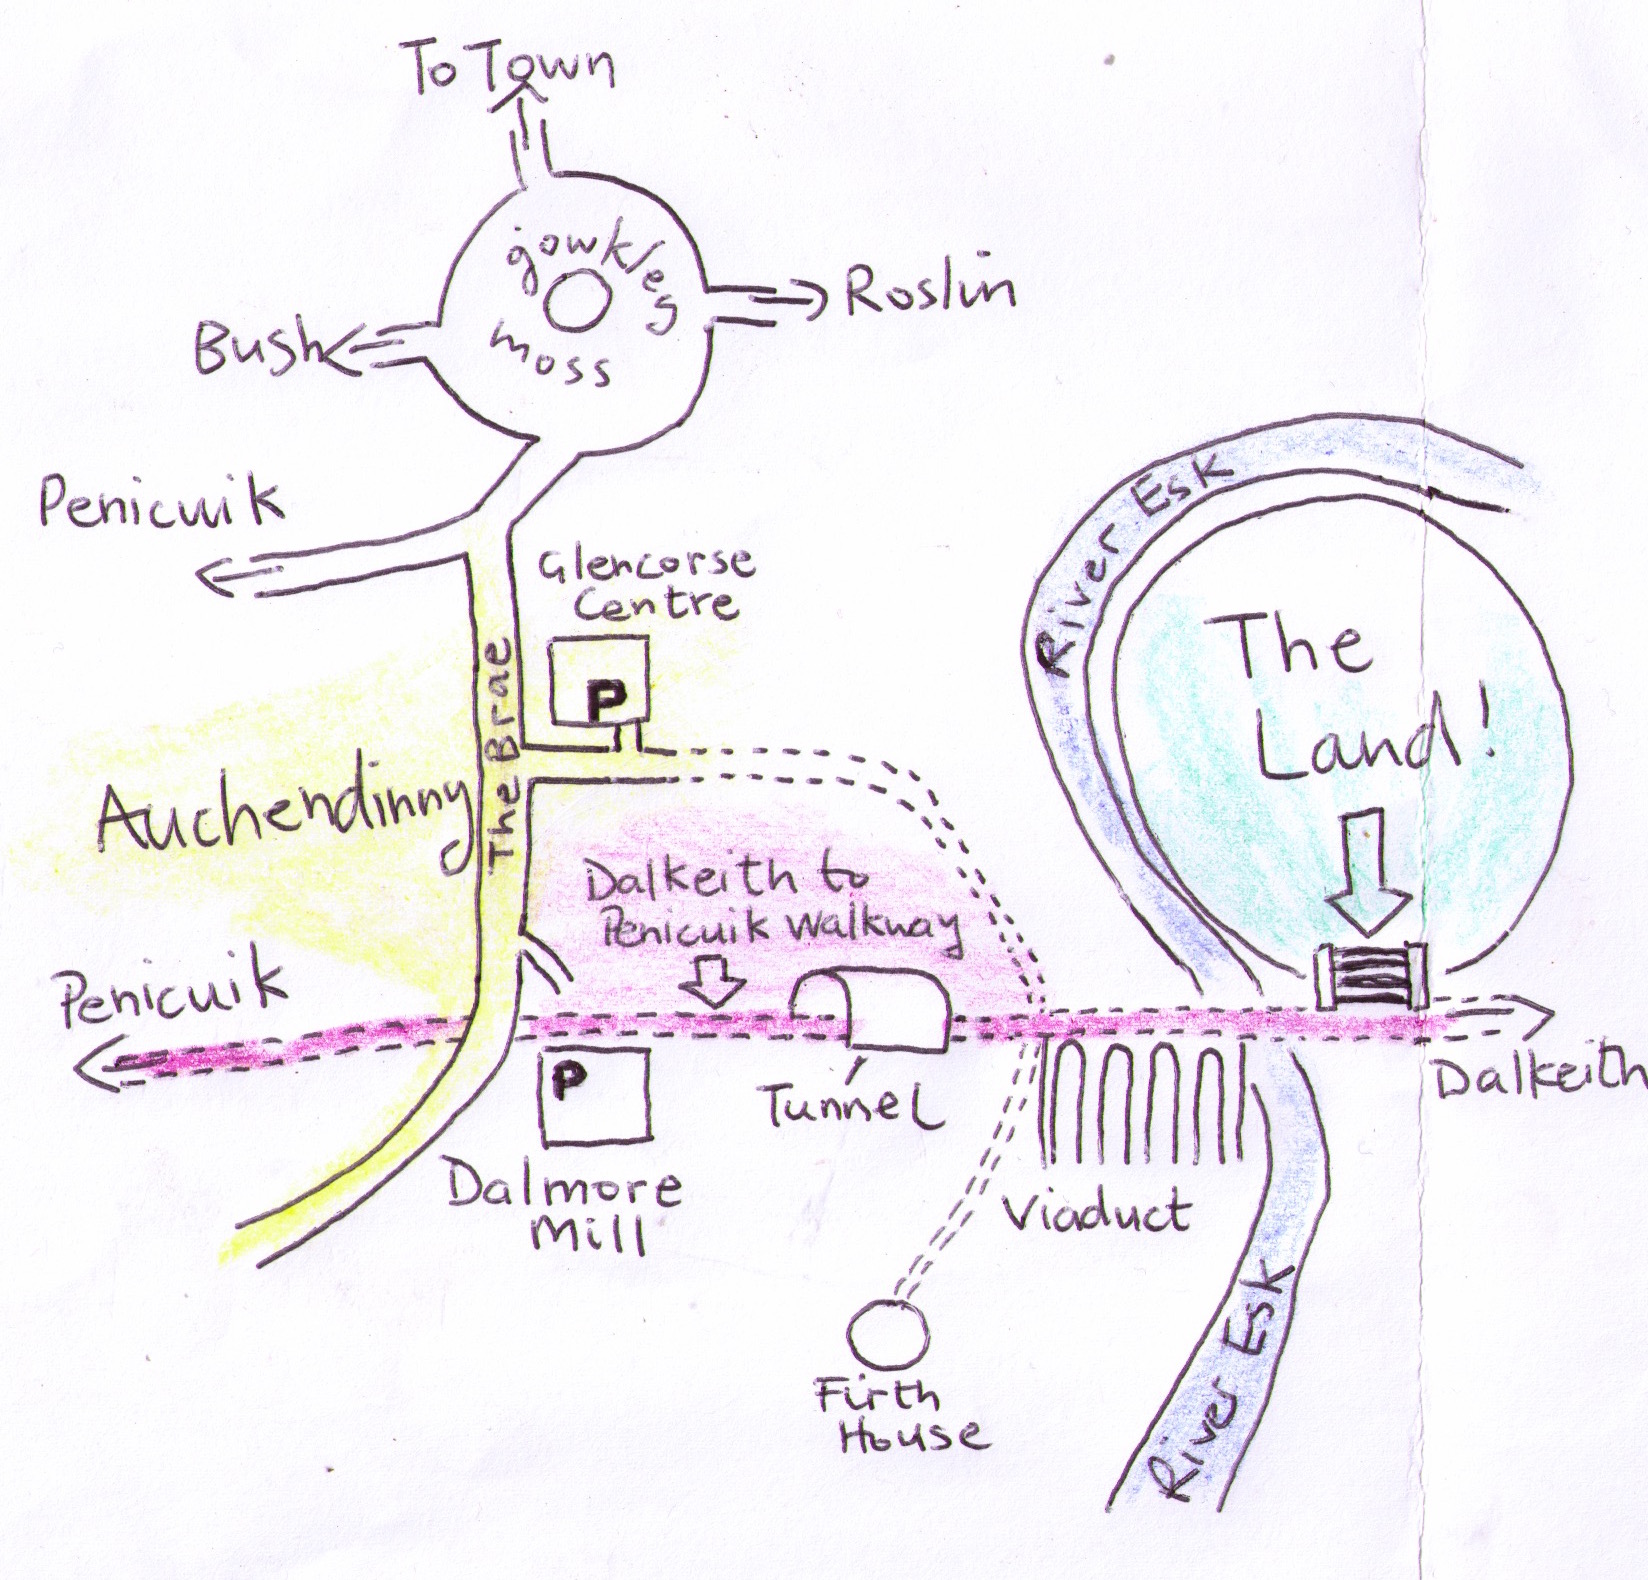 To Town
gowkley
moss
Roslin
Bush
Penicuik
Glencorse
Centre
P
River Esk
The
Land!
The Brae
Auchendinny
Dalkeith to
Penicuik Walkway
Penicuik
Dalkeith
P
Tunnel
Dalmore
Mill
Viaduct
River Esk
Firth
House